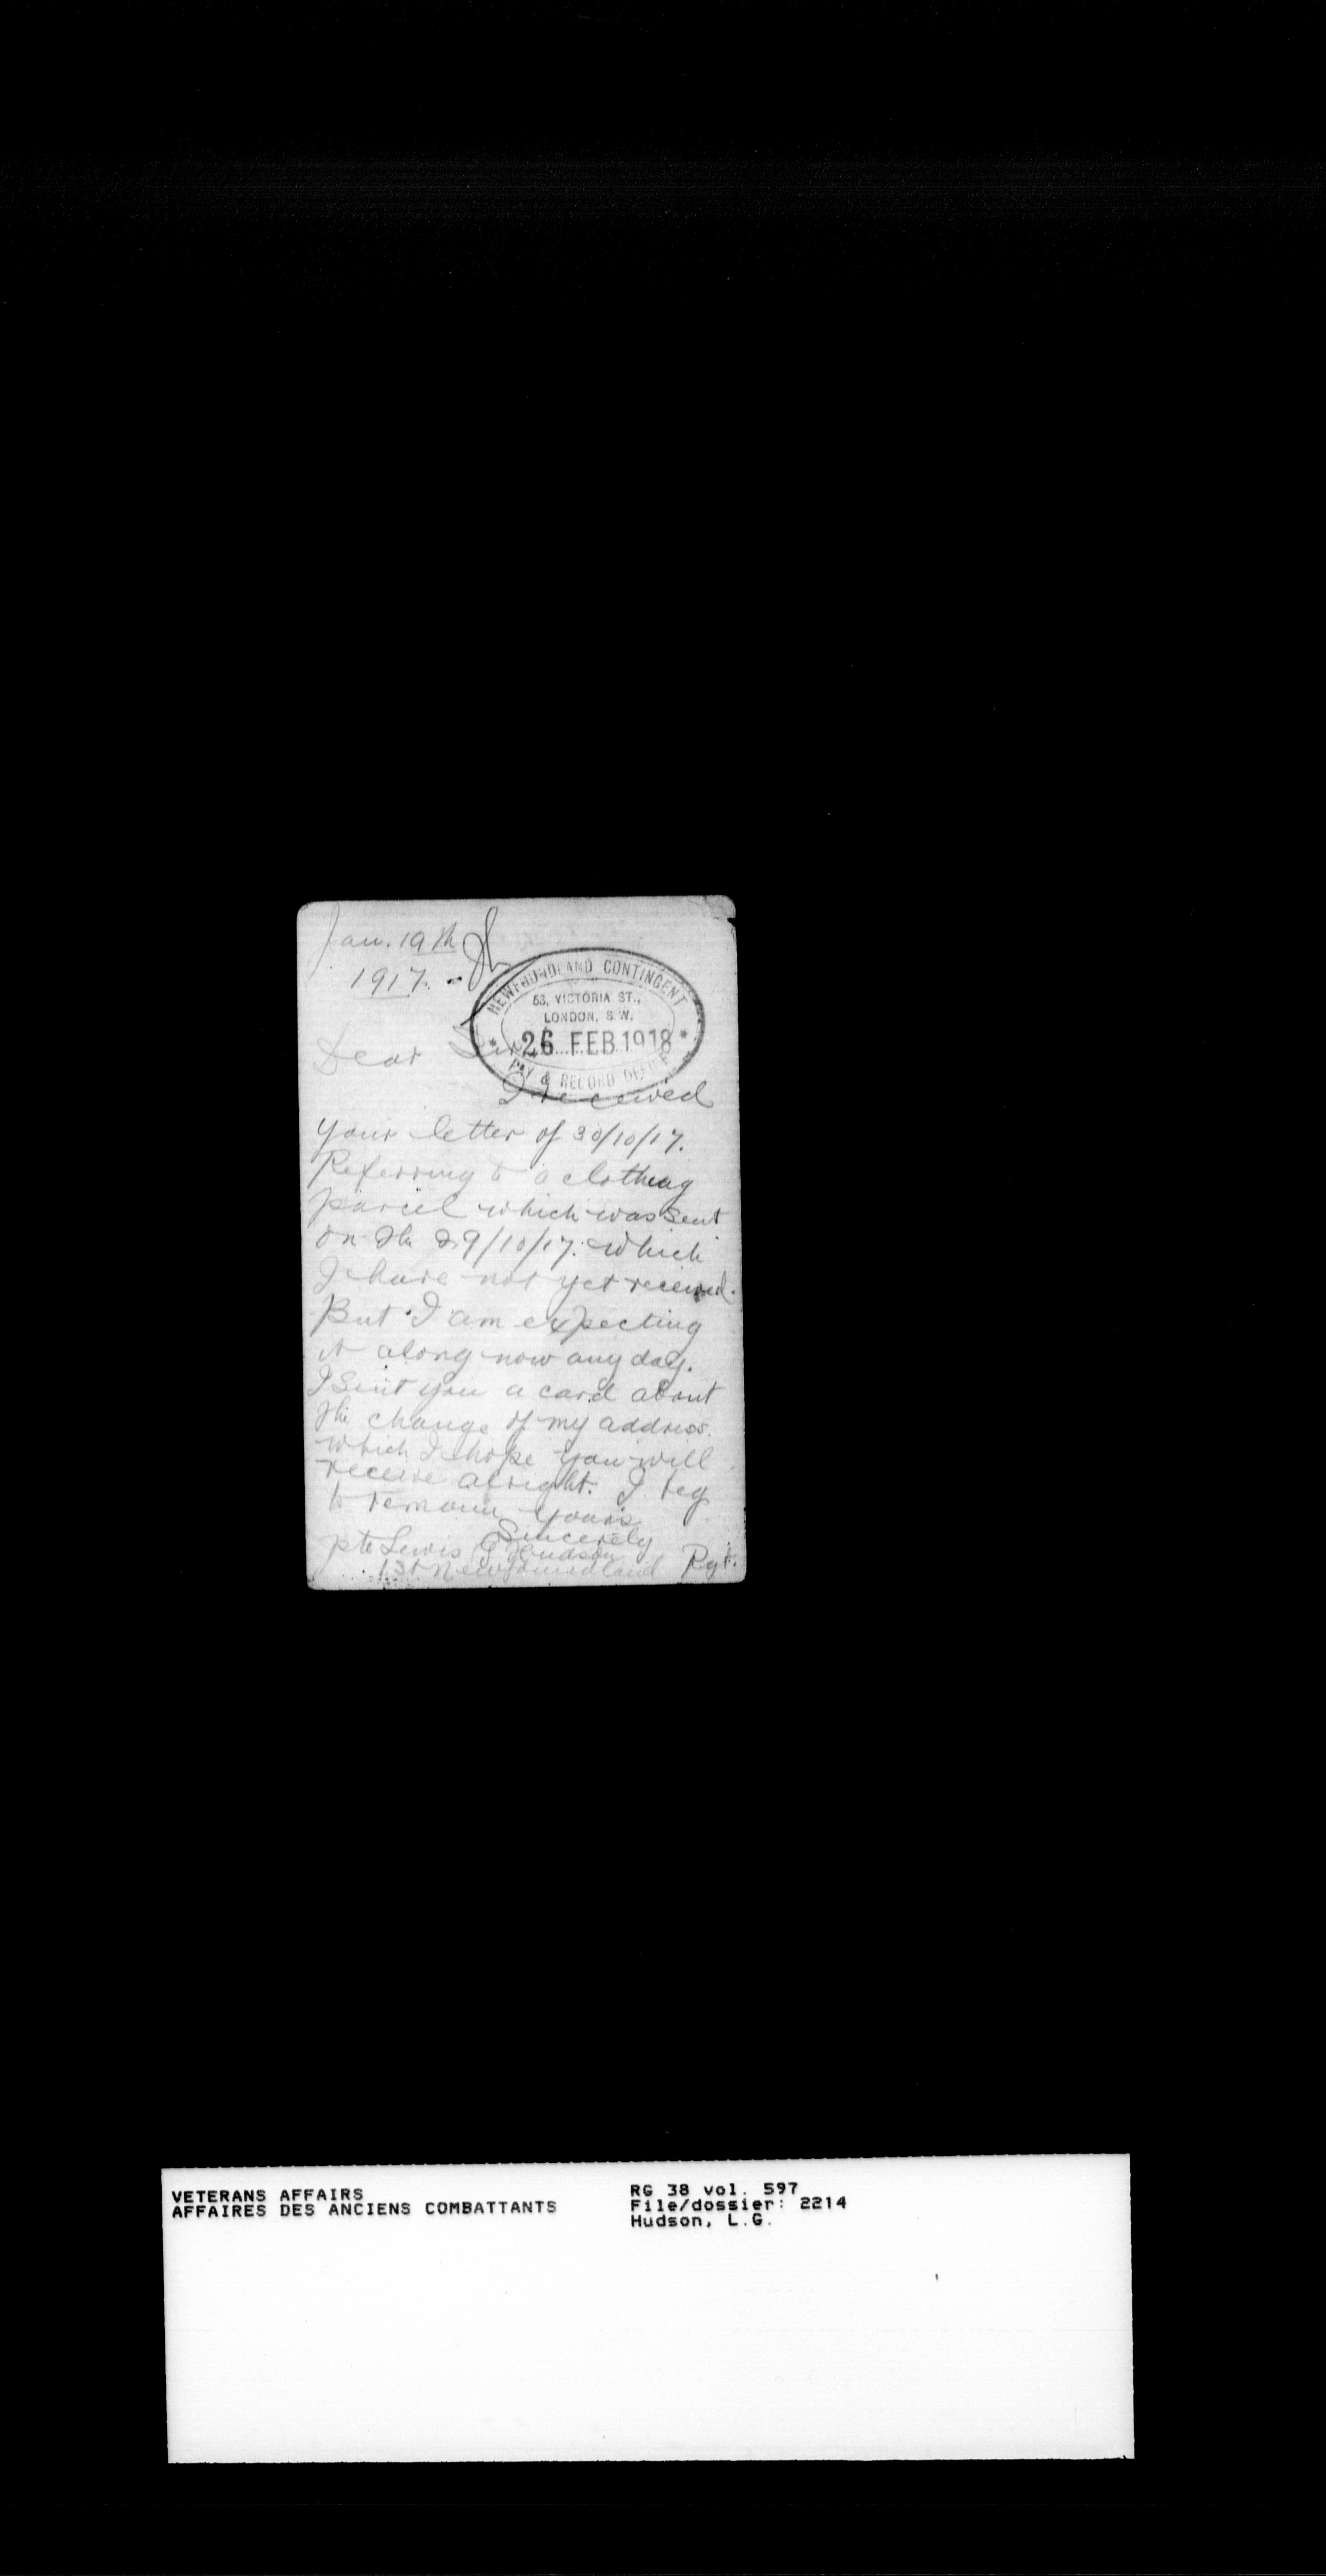 Jan. 19th
1917.
NEWFOUNDLAND CONTINGENT
53, VICTORIA ST.,
LONDON, S.W.
26 FEB 1918
PAY & RECORD OFFICE
Dear Sir
I received
your letter of 30/10/17.
Referring to a clothing
parcel which was sent
on the 29/10/17. which
I have not yet received.
But I am expecting
it along now any day.
I sent you a card about
the change of my address.
which I hope you will
receive alright. I beg
to remain yours
Sincerely
pte Lewis G Hudson
1st Newfoundland Rgt.
VETERANS AFFAIRS
AFFAIRES DES ANCIENS COMBATTANTS
RG 38 vol. 597
File/dossier: 2214
Hudson, L.G.